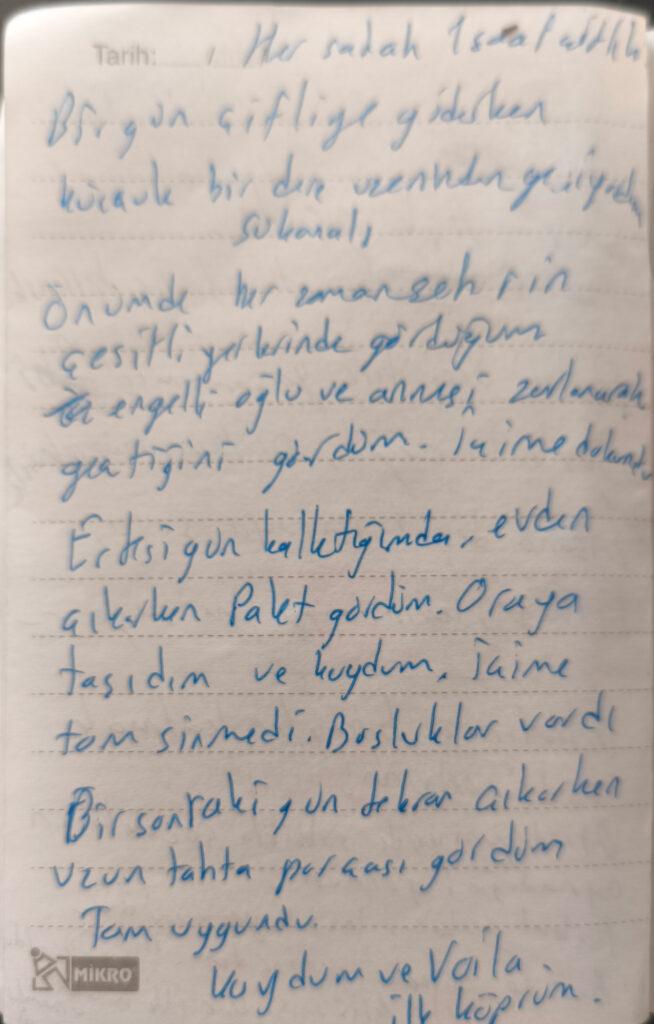 Tarih: / Her sabah 1 saat
Bir gün çiftliğe giderken
küçük bir dere üzerinden geçiyordum
su kanalı
Önümde her zaman şehrin
çeşitli yerlerinde gördüğüm
engelli oğlu ve annesi zorlanarak
geçtiğini gördüm. İçime dokundu
Ertesi gün kalktığımda, evden
çıkarken Palet gördüm. Oraya
taşıdım ve koydum. İçime
tam sinmedi. Boşluklar vardı
Bir sonraki gün tekrar çıkarken
uzun tahta parçası gördüm
Tam uygundu.
MİKRO
koydum ve Voila.
ilk köprüm.